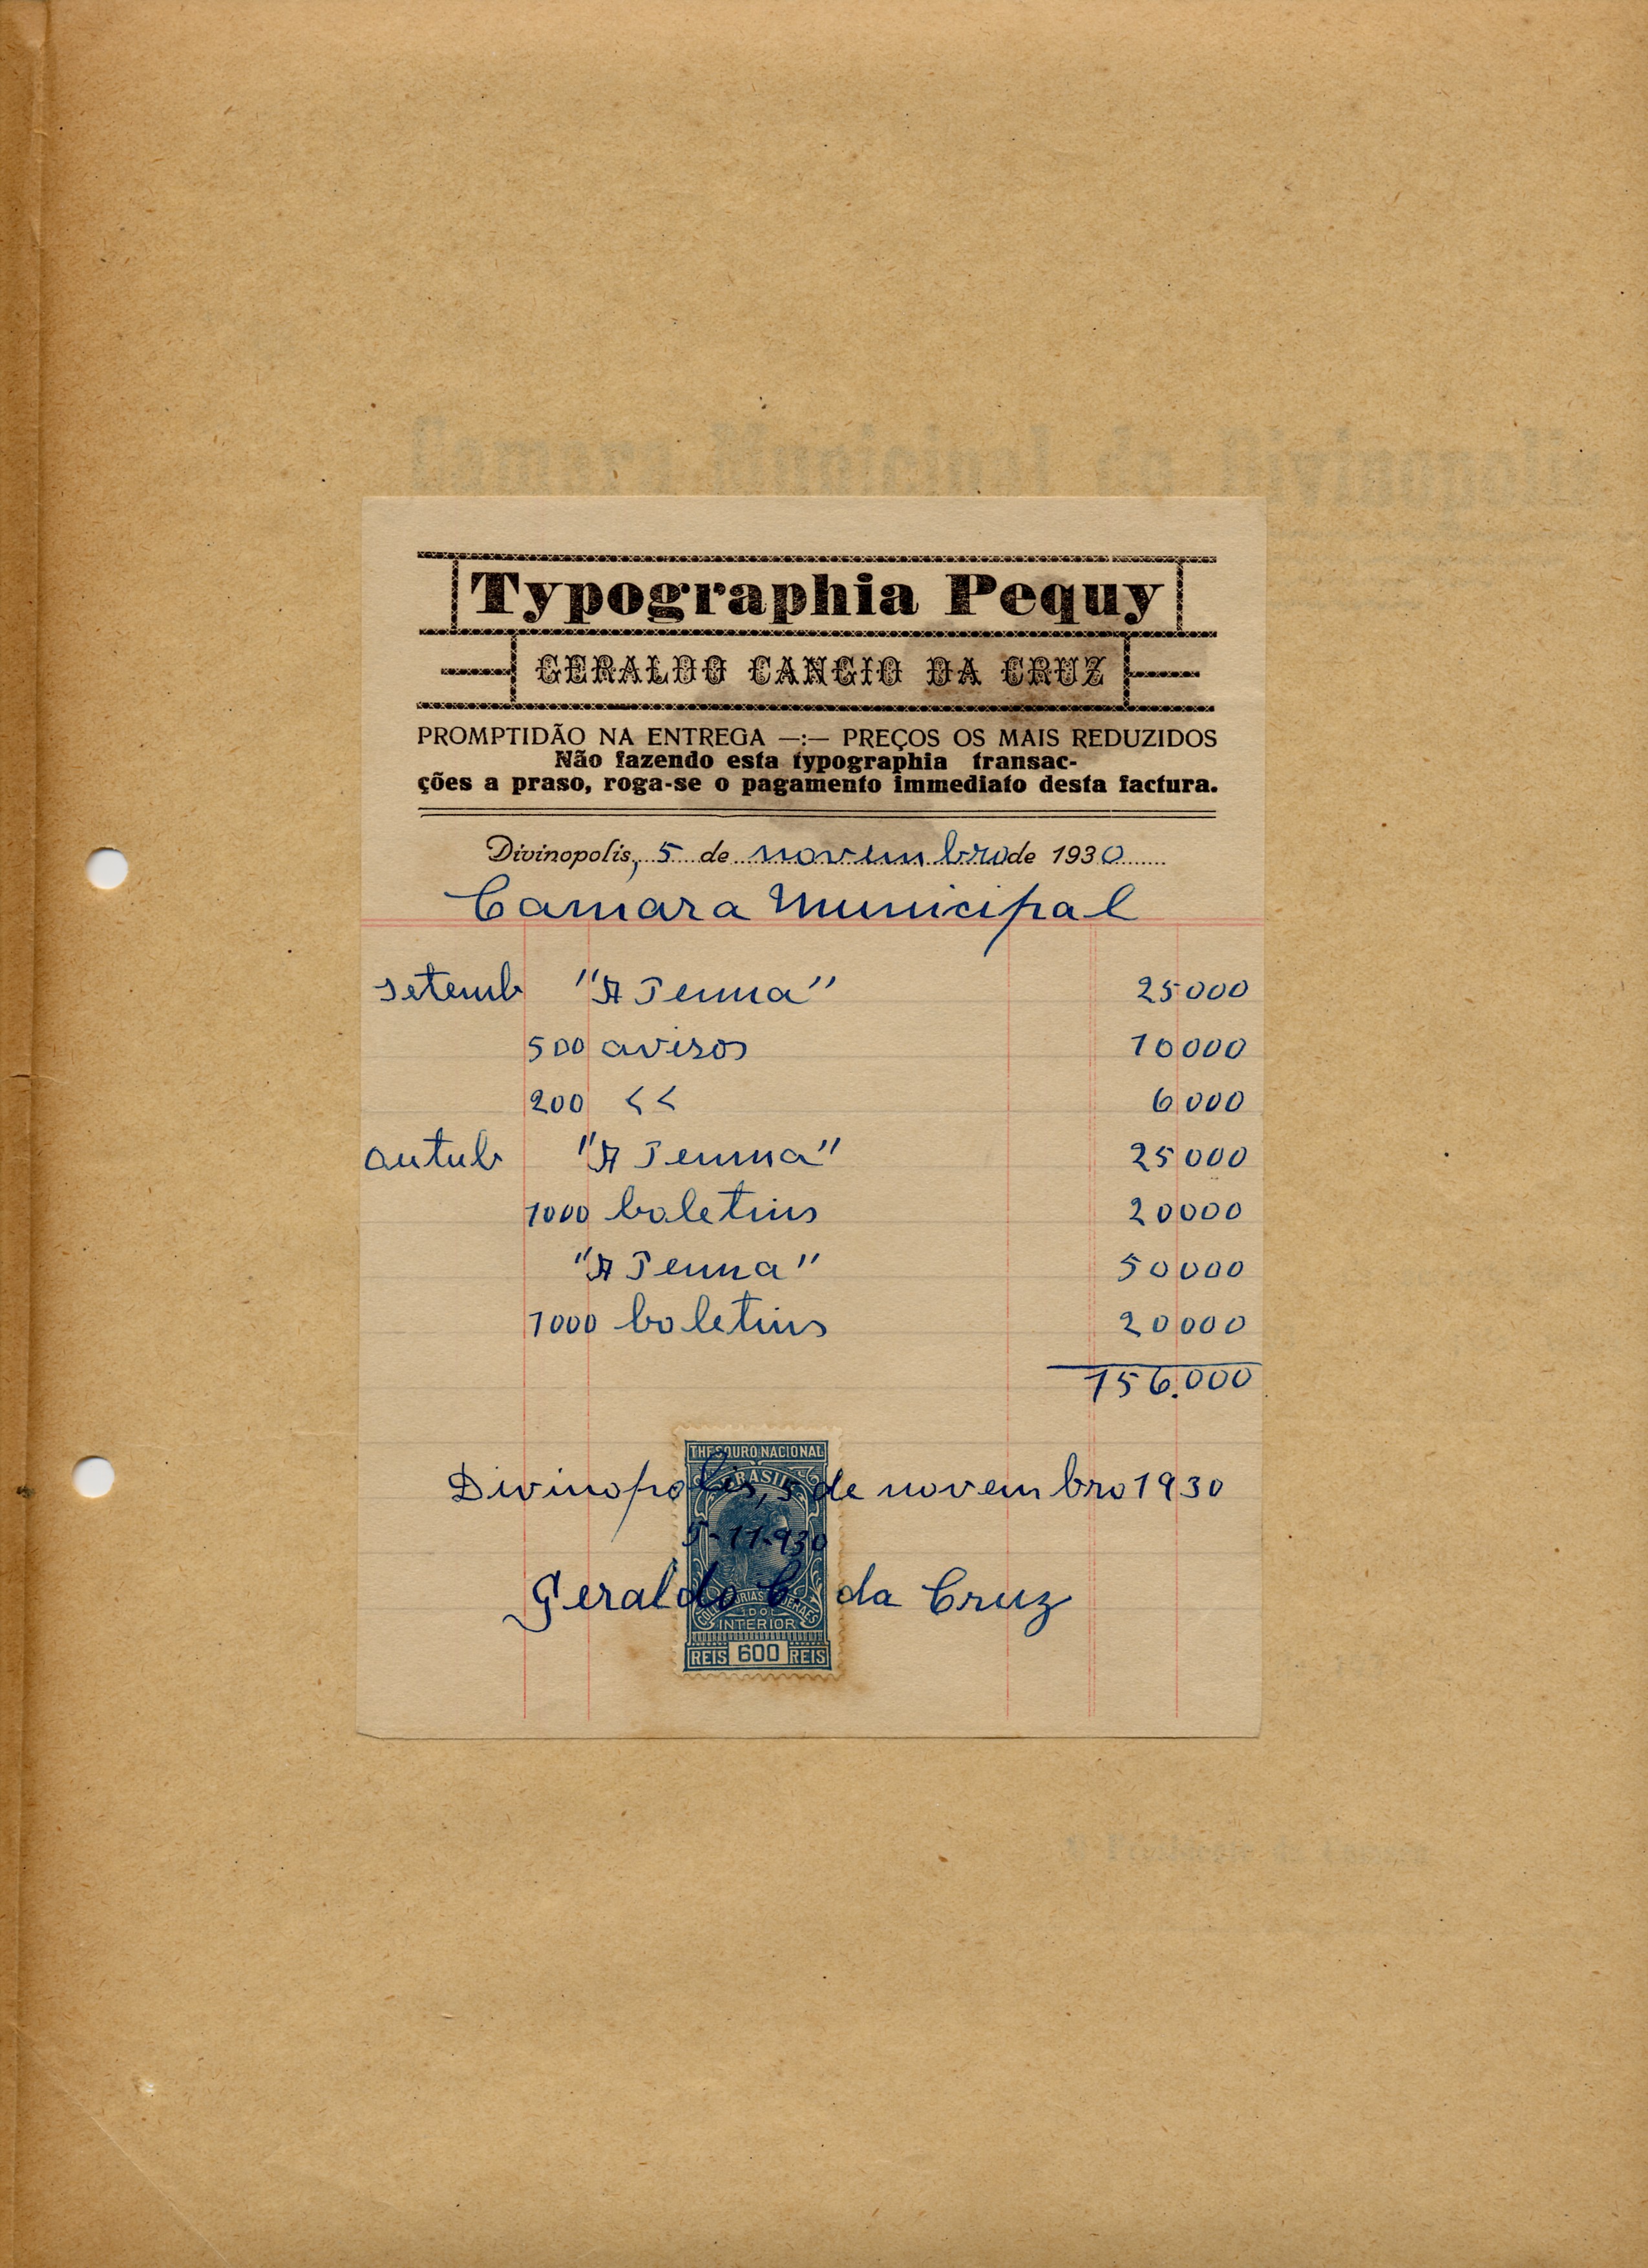 Typographia Pequy
GERALDO CANCIO DA CRUZ
PROMPTIDÃO NA ENTREGA —:— PREÇOS OS MAIS REDUZIDOS
Não fazendo esta typographia transac-
ções a praso, roga-se o pagamento immediato desta factura.
Divinopolis, 5 de novembro de 1930
Camara Municipal
setemb "A Penna" 25000
500 avisos 10000
200 << 6000
outub "A Penna" 25000
1000 boletins 20000
"A Penna" 50000
1000 boletins 20000
156.000
THESOURO NACIONAL
BRASIL
Divinopolis, 5 de novembro 1930
5-11-930
Geraldo C. da Cruz
COLLECTORIAS FEDERAES
DO
INTERIOR
REIS 600 REIS